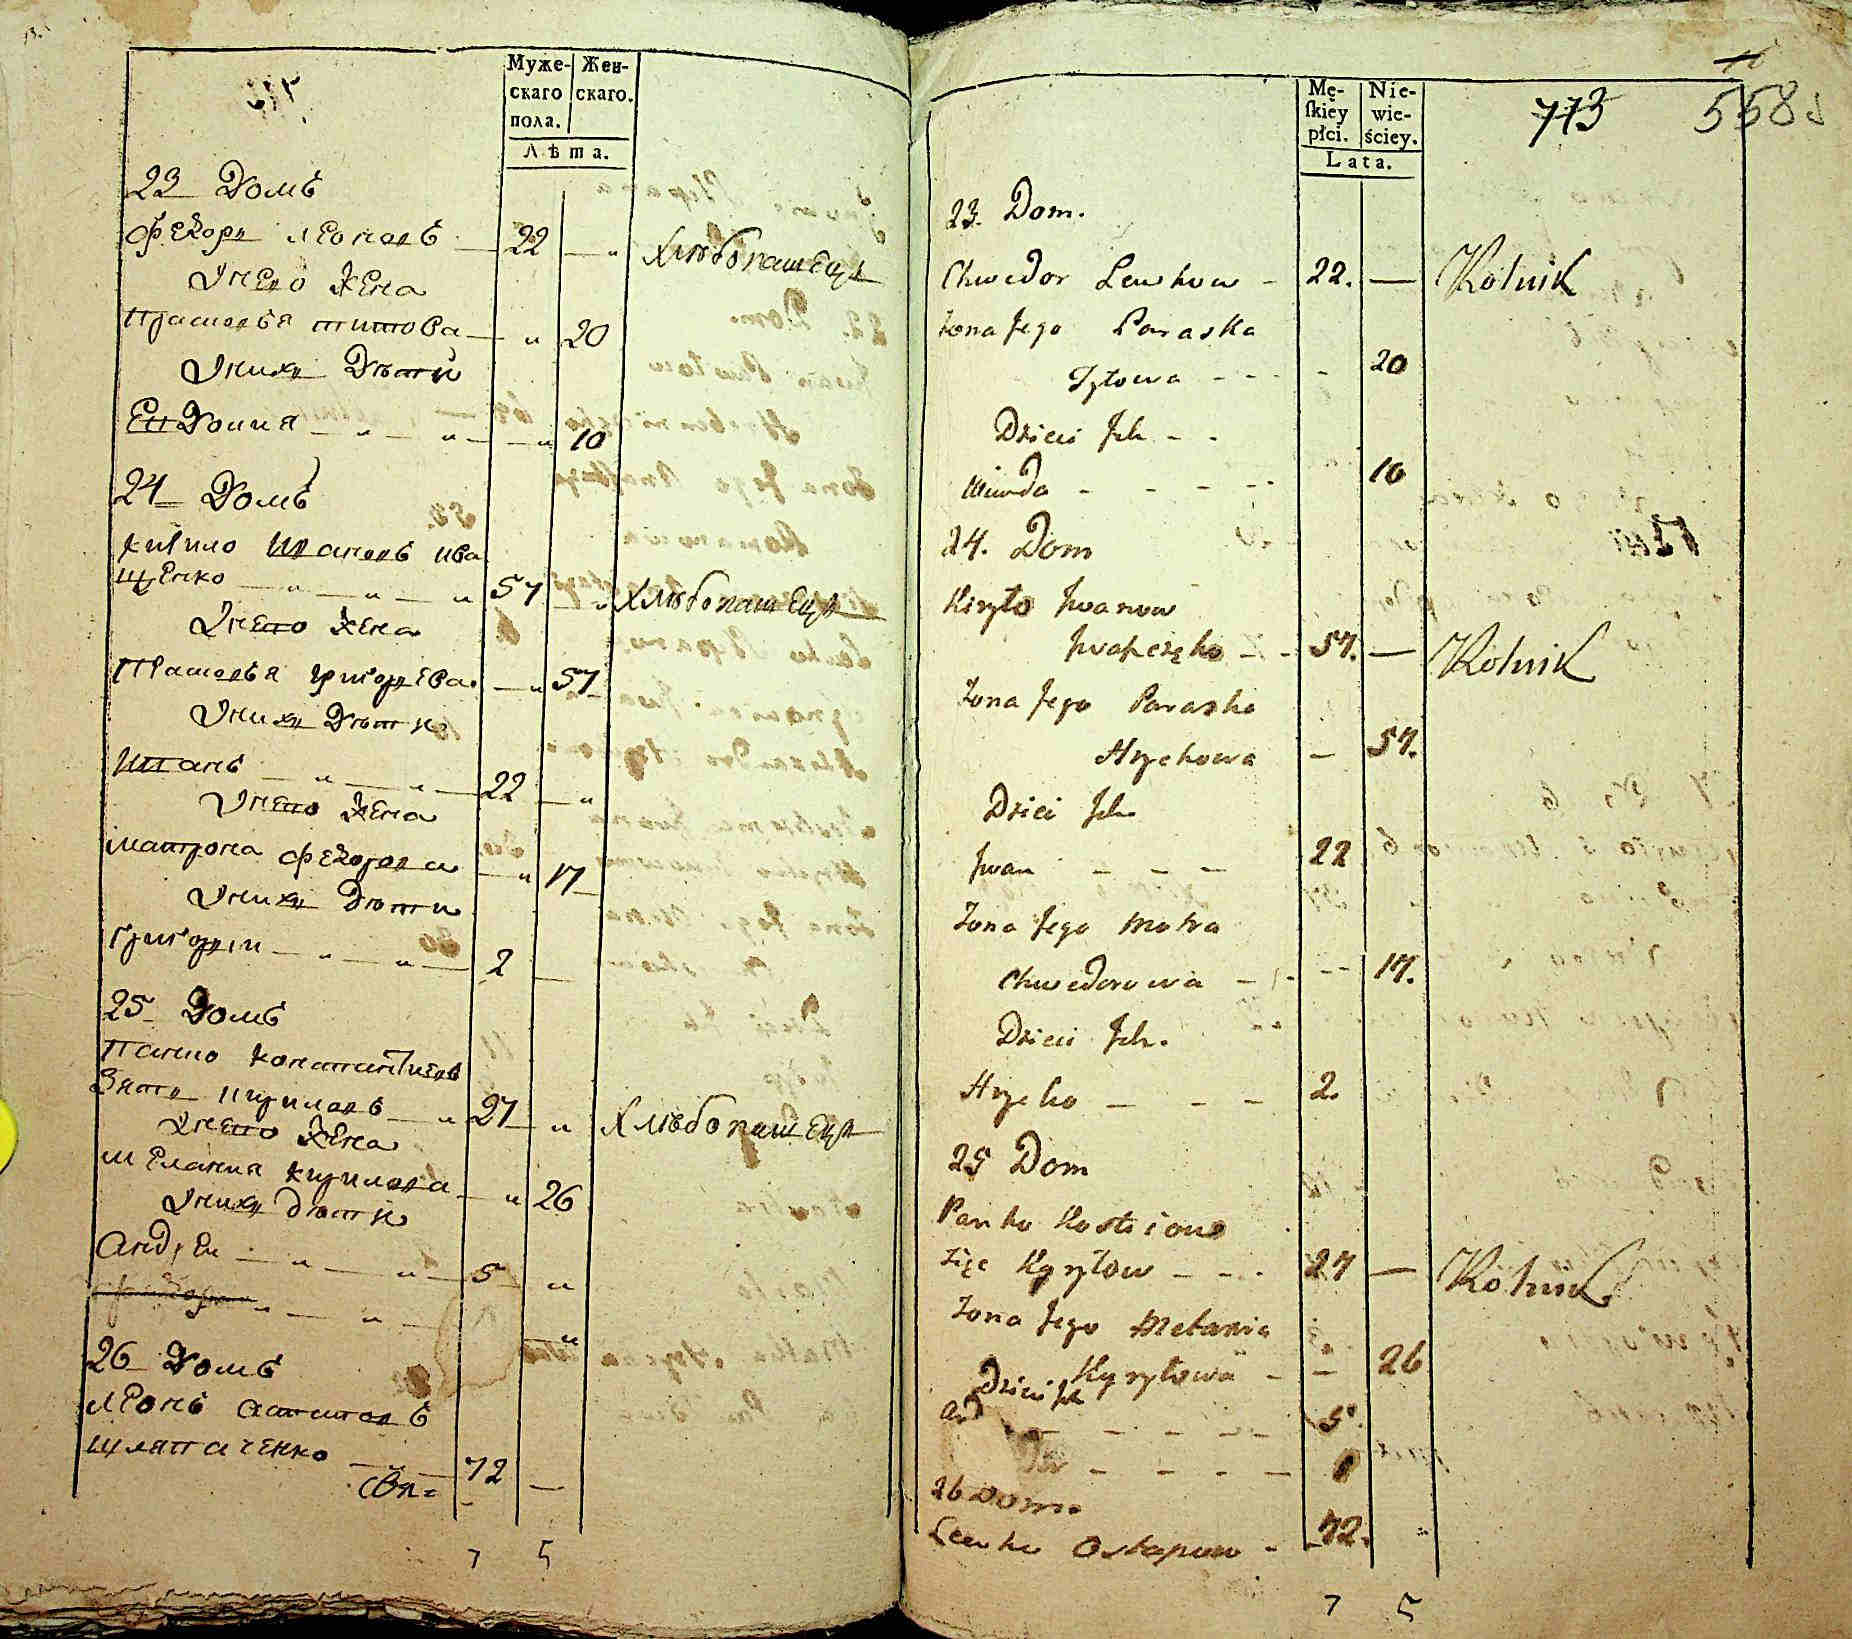 Муже-
скаго
пола.
Жен-
скаго.
Лѣта.
23 Домъ
Федоръ Леоновъ 22 — "
Хлѣбопашецъ
Унего жена
Прасковья Титова — " 20
Унихъ Дѣти
Евдокия — " — " — " 10
24 Домъ
Кирило Ивановъ Ива
щенко — " — " — " 57 — "
Хлѣбопашецъ
Унего жена
Прасковья Григорьева — " 57
Унихъ Дѣти
Иванъ — " — " — 22 — "
Унего жена
Матрона Федорова — " 17
Унихъ Дѣти
Григорий — " — " — 2 —
25 Домъ
Панко Константиновъ
Зять Кириловъ — " 27 "
Хлѣбопашецъ
Унего жена
Мелания Кирилова — " 26
Унихъ дѣти
Андрей — " — " — 5 "
26 Домъ
Леонъ Астаповъ
72 —
7 5
Mę-
skiey
płci.
Nie-
wie-
ściey.
Lata.
773
558
23. Dom.
Chwedor Lewkow - 22. — Rolnik
Żona Jego Paraska
Tytowa - - - - 20
Dzieci Ich - -
10
24. Dom
Kiryło Iwanow
Iwaszczęko - - 57. — Rolnik
Żona Jego Paraska
Hrychowa - 57.
Dzieci Ich
Iwan - - - 22
Żona Jego Motra
Chwedorowa - - - 17.
Dzieci Ich.
Hryćko - - - 2.
25 Dom
Panko Kostiiow
Zięc Kyryłow - - - 27 — Rolnik
Żona Jego Mełania
Kyryłowa - - 26
Dzieci Ich
And - - - - 5
26 Dom.
Lewko Ostapow - 72.
7 5